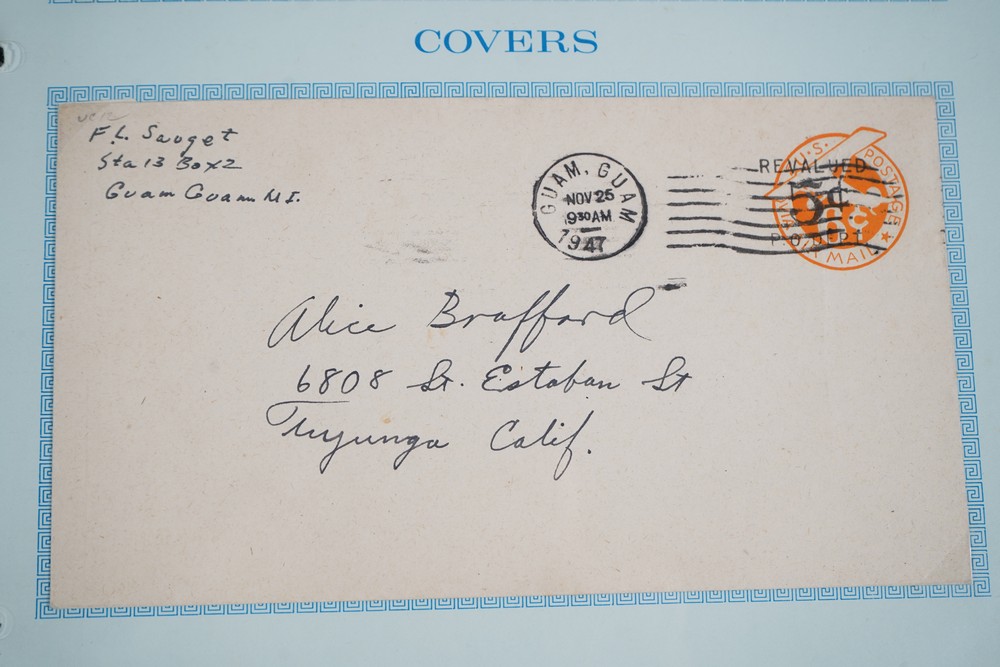 COVERS
UC12
F.L. Sauget
Sta 13 Box 2
Guam Guam M.I.
GUAM, GUAM
NOV 25
9 30 AM
1947
U.S. POSTAGE
REVALUED
5¢
P.O. DEPT.
VIA AIR MAIL
Alice Brafford
6808 St. Estaban St
Tujunga Calif.